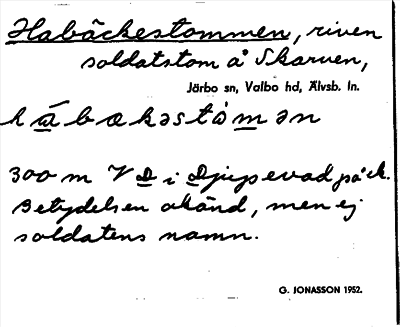 Habäckestommen, riven
soldatstom å Skarven,
Järbo sn, Valbo hd, Älvsb. ln.
hábækəstòmən
300 m V D i Djupevad på ek.
Betydelsen okänd, men ej
soldatens namn.
G. JONASSON 1952.